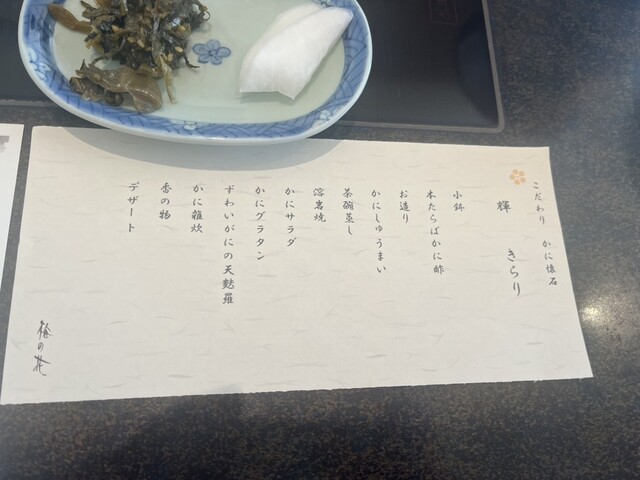 こだわり かに懐石
輝 きらり
小鉢
本たらばかに酢
お造り
かにしゅうまい
茶碗蒸し
溶岩焼
かにサラダ
かにグラタン
ずわいがにの天麩羅
かに雑炊
香の物
デザート
梅の花